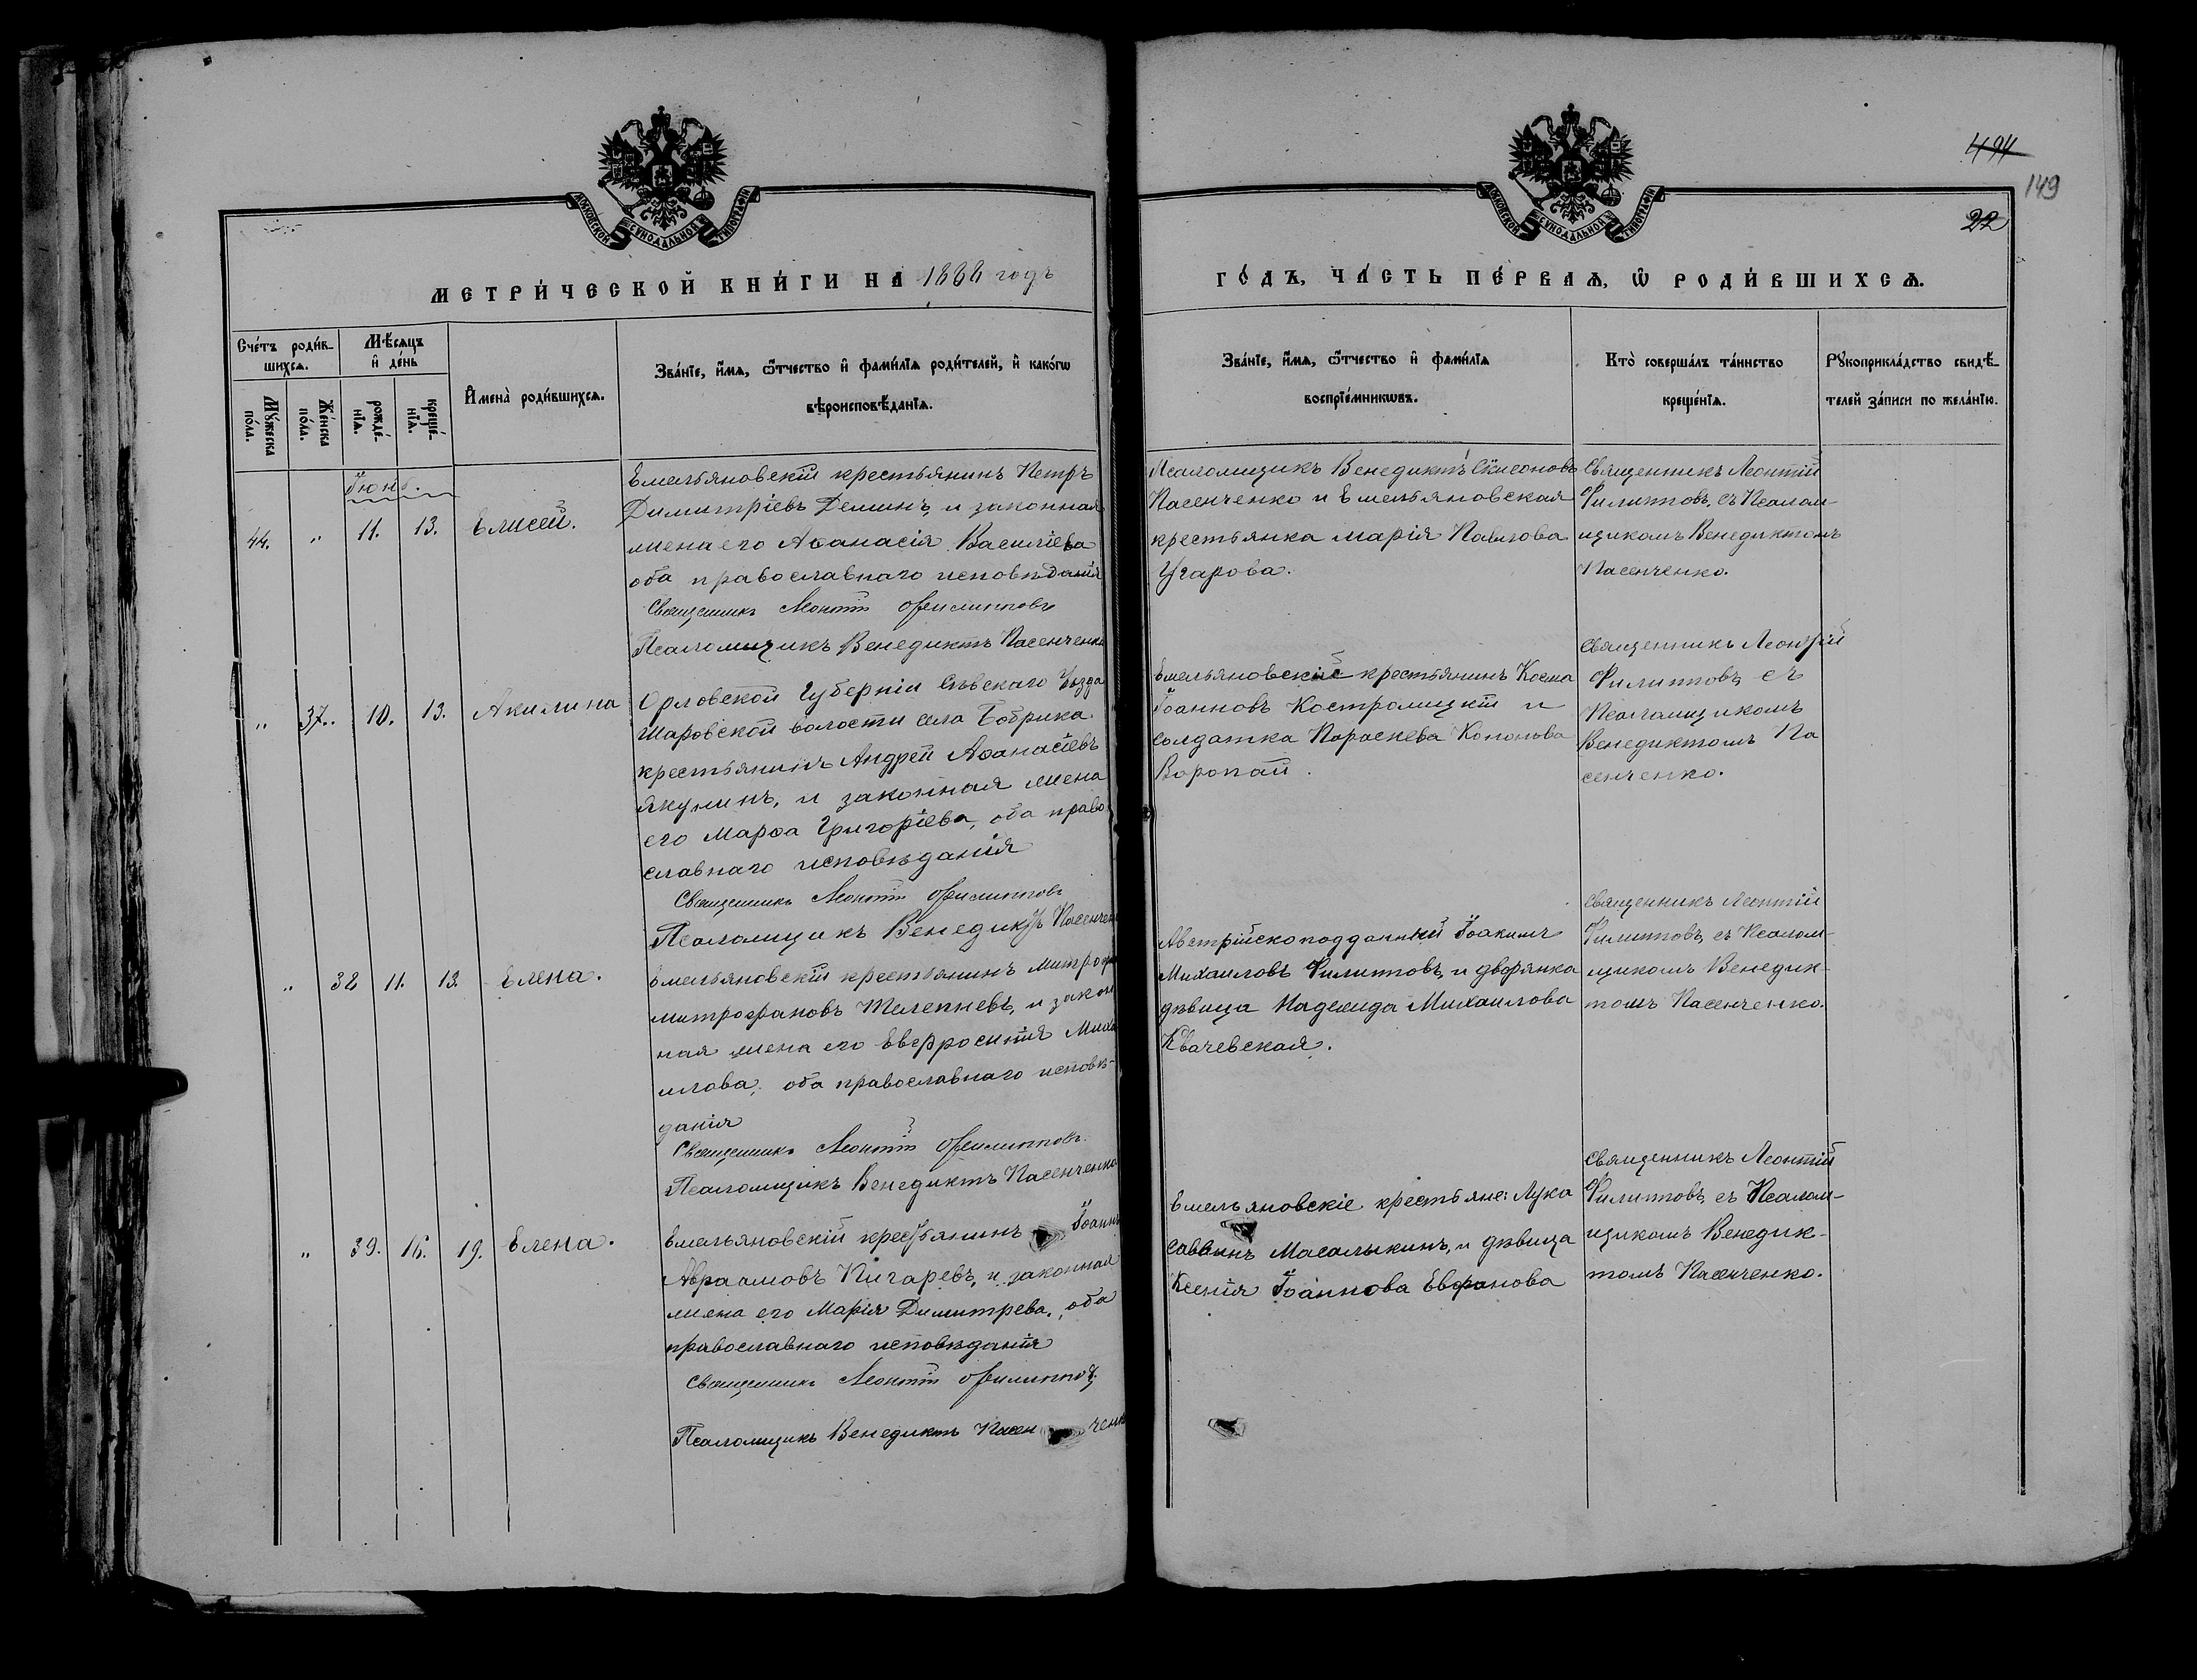 494
149
22
МОСКОВСКОЙ СѴНОДАЛЬНОЙ ТИПОГРАФІИ
МОСКОВСКОЙ СѴНОДАЛЬНОЙ ТИПОГРАФІИ
МЕТРИ́ЧЕСКОЙ КНИ́ГИ НА 1888 годъ
ГО́ДЪ, ЧА́СТЬ ПЕ́РВАѦ, Ѡ҆ РОДИ́ВШИХСѦ.
Сче́тъ роди́в-
шихсѧ.
Мѣ́сѧцъ
и҆ де́нь
Мꙋ́жеска
по́ла.
Же́нска
по́ла.
рожде́-
нїѧ.
креще́-
нїѧ.
И҆мена̀ роди́вшихсѧ.
Зва́нїе, и҆́мѧ, ѻ҆́тчество и҆ фами́лїѧ роди́телей, и҆ како́гѡ
вѣроисповѣ́данїѧ.
Зва́нїе, и҆́мѧ, ѻ҆́тчество и҆ фами́лїѧ
воспрїе́мникѡвъ.
Кто̀ соверша́лъ та́инство
креще́нїѧ.
Рꙋкоприкла́дство свидѣ́-
телей за́писи по жела́нїю.
Іюнь.
44. „ 11. 13. Елисей.
Емельяновскій крестьянинъ Петръ
Димитріевъ Деминъ, и законная
жена его Аѳанасія Василіева
оба православнаго исповѣданія
Священникъ Леонтій Филипповъ
Псаломщикъ Венедиктъ Пасенченко
Псаломщикъ Венедиктъ
Пасенченко и Емельяновская
крестьянка Марія Павлова
Угарова.
Священникъ Леонтій
Филипповъ, съ Псалом-
щикомъ Венедиктомъ
Пасенченко.
„ 37. 10. 13. Акилина
Орловской Губерніи Сѣвскаго Уѣзда
Шаровской волости села Бобрика
крестьянинъ Андрей Аѳанасіевъ
Якунинъ, и законная жена
его Марѳа Григоріева, оба право
славнаго исповѣданія
Священникъ Леонтій Филипповъ
Псаломщикъ Венедиктъ Пасенчен
Емельяновскій крестьянинъ Косма
Іоанновъ Костромицкій и
солдатка Параскева Кононова
Воропай.
Священникъ Леонтій
Филипповъ, съ
Псаломщикомъ
Венедиктомъ Па
сенченко.
„ 38 11. 13. Елена.
Емельяновскій крестьянинъ Митроф
Митрофановъ Телепневъ, и закон
ная жена его Евфросинія Миха
илова, оба православнаго исповѣ-
данія
Священникъ Леонтій Филипповъ
Псаломщикъ Венедиктъ Пасенченко
Австрійскоподданный Іоакимъ
Михаиловъ Филипповъ, и дворянка
дѣвица Надежда Михаилова
Квачевская.
Священникъ Леонтій
Филипповъ, съ Псалом-
щикомъ Венедик-
томъ Пасенченко.
„ 39. 16. 19. Елена.
Емельяновскій крестьянинъ Іоаннъ
Авраамовъ Пигаревъ, и законная
жена его Марія Димитрева, оба
православнаго исповѣданія
Священникъ Леонтій Филипповъ
Псаломщикъ Венедиктъ Пасенченк
Емельяновскіе крестьяне: Лука
Саввинъ Масалыкинъ, и дѣвица
Ксенія Іоаннова Евфанова
Священникъ Леонтій
Филипповъ, съ Псалом-
щикомъ Венедик-
томъ Пасенченко.